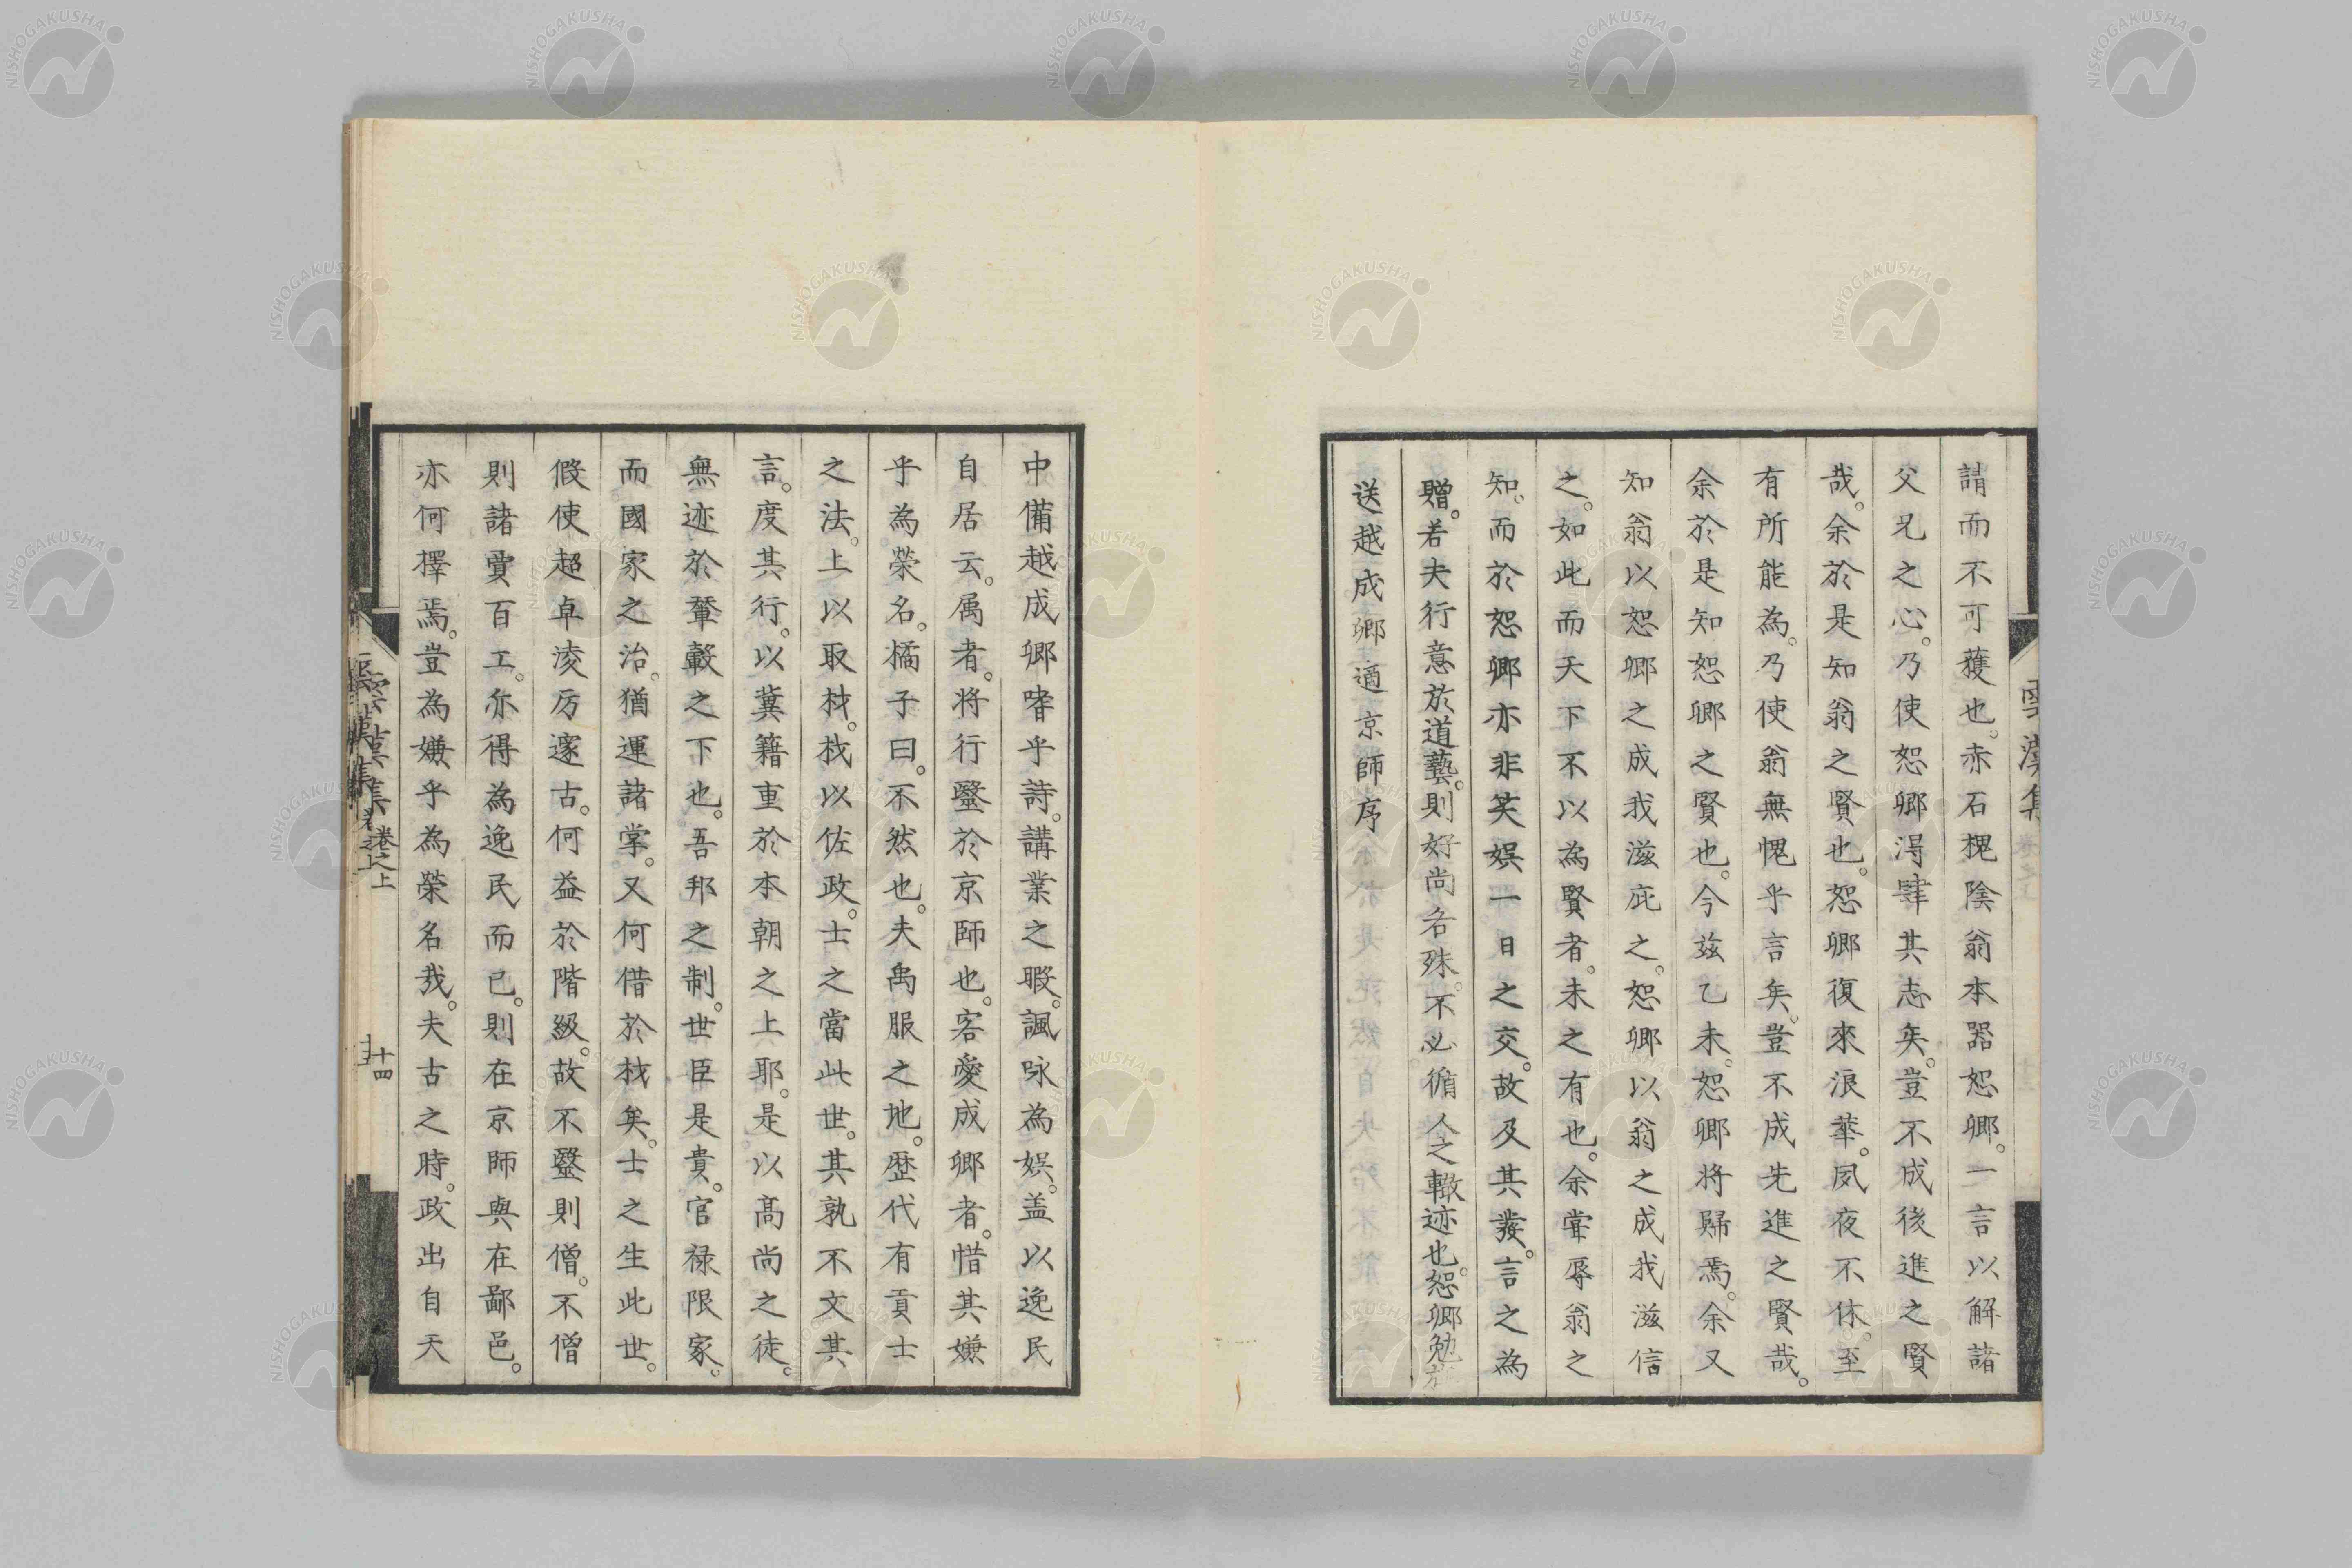 請而不可獲也。赤石槐陰翁本器恕卿。一言以解諸
父兄之心。乃使恕卿淂肆其志矣。豈不成後進之賢
哉。余於是知翁之賢也。恕卿復來浪華。夙夜不休。至
有所能為。乃使翁無愧乎言矣。豈不成先進之賢哉。
余於是知恕卿之賢也。今玆乙未。恕卿将歸焉。余又
知翁以恕卿之成我滋庇之。恕卿以翁之成我滋信
之。如此而天下不以為賢者。未之有也。余甞辱翁之
知。而於恕卿亦非笑娯一日之交。故及其發。言之為
贈。若夫行意於道藝。則好尚各殊。不必循人之轍迹也。恕卿勉
送越成卿適京師序
中備越成卿嗜乎詩。講業之暇。諷咏為娯。盖以逸民
自居云。属者。将行毉於京師也。客愛成卿者。惜其嫌
乎為榮名。橘子曰。不然也。夫禹服之地。歴代有貢士
之法。上以取材。材以佐政。士之當此世。其孰不文其
言。度其行。以冀籍重於本朝之上耶。是以髙尚之徒。
無迹於輦轂之下也。吾邦之制。世臣是貴。官禄限家。
而國家之治。猶運諸掌。又何借於材矣。士之生此世。
假使超卓淩厉邃古。何益於階級。故不毉則僧。不僧
則諸賈百工。亦得為逸民而已。則在京師與在鄙邑。
亦何擇焉。豈為嫌乎為榮名哉。夫古之時。政出自天
雲漢集
卷之上
十四